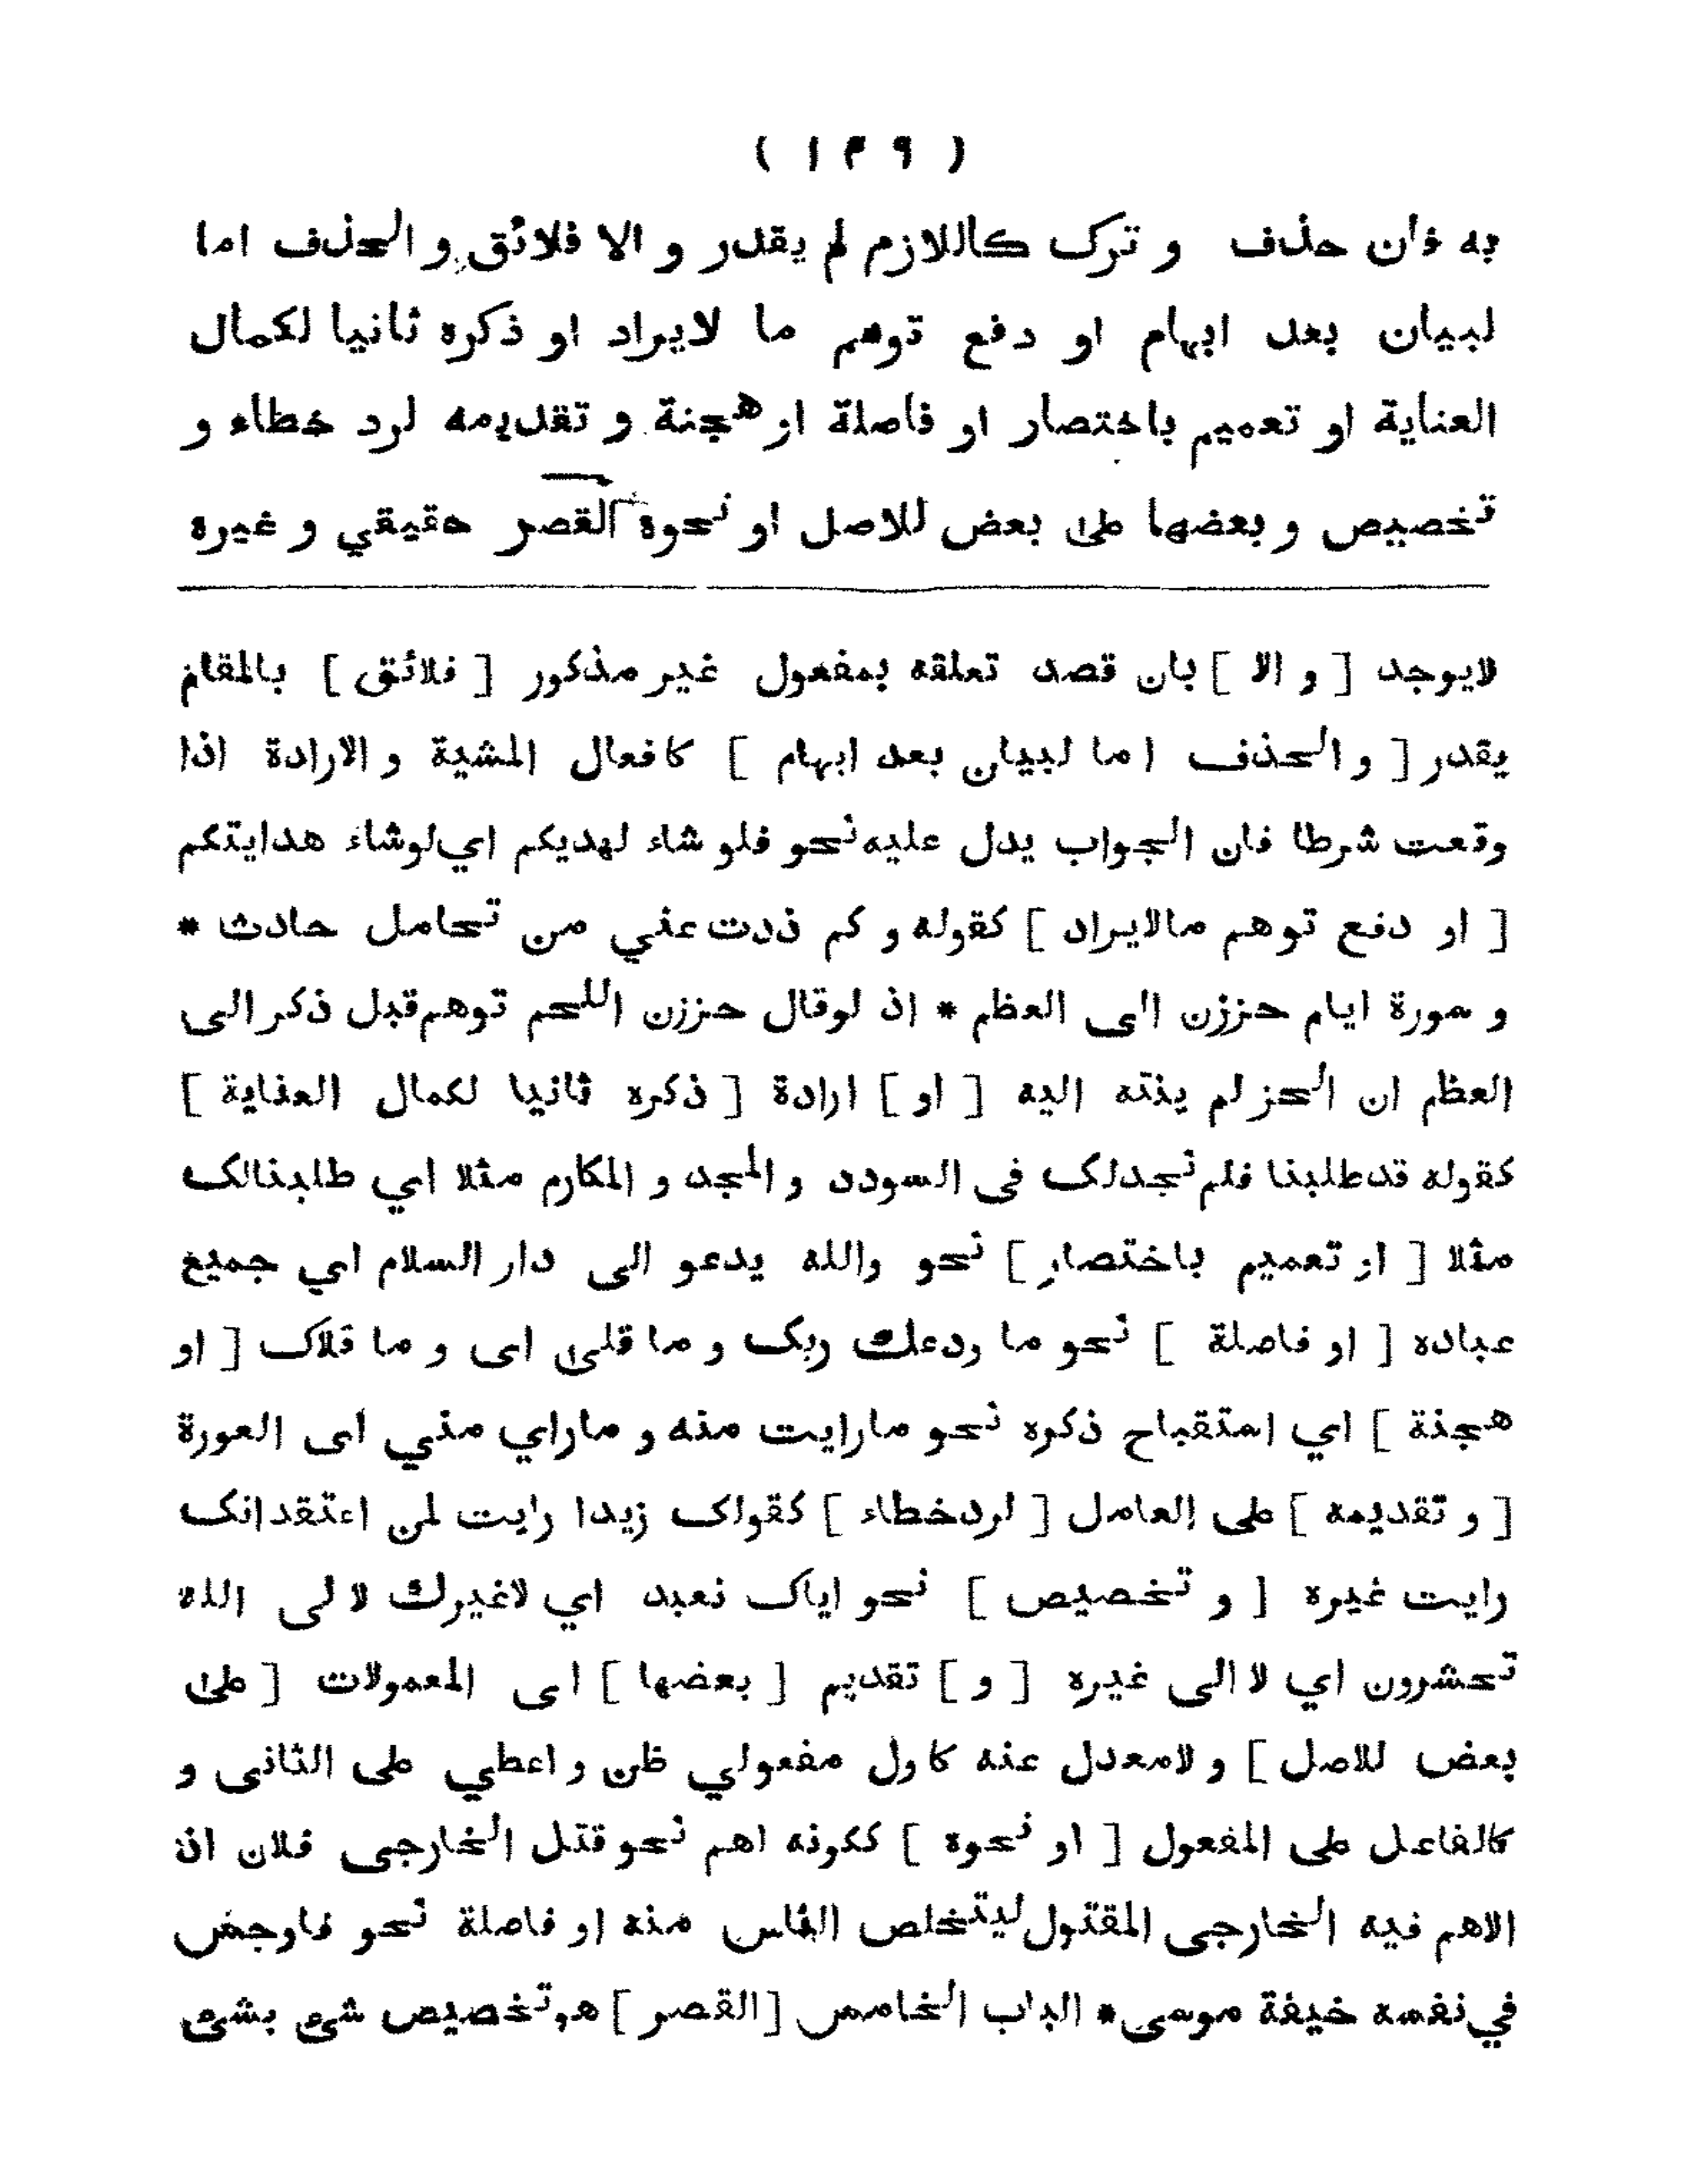 ( ١٣٩ )
به فان حذف و ترك كاللازم لم يقدر و الا فلائق و الحذف اما
لبيان بعد ابهام او دفع توهم ما لايراد او ذكره ثانيا لكمال
العناية او تعميم باختصار او فاصلة او هجنة و تقديمه لرد خطاء و
تخصيص و بعضها على بعض للاصل او نحوه القصر حقيقي و غيره
لايوجد [ و الا ] بان قصد تعلقه بمفعول غير مذكور [ فلائق ] بالمقام
يقدر [ و الحذف اما لبيان بعد ابهام ] كافعال المشية و الارادة اذا
وقعت شرطا فان الجواب يدل عليه نحو فلو شاء لهديكم اي لوشاء هدايتكم
[ او دفع توهم مالايراد ] كقوله و كم ذدت عني من تحامل حادث *
و سورة ايام حززن الى العظم * اذ لوقال حززن اللحم توهم قبل ذكر الى
العظم ان الحز لم ينته اليه [ او ] ارادة [ ذكره ثانيا لكمال العناية ]
كقوله قد طلبنا فلم نجد لك فى السودد و المجد و المكارم مثلا اي طلبنا لك
مثلا [ او تعميم باختصار ] نحو والله يدعو الى دار السلام اي جميع
عباده [ او فاصلة ] نحو ما ودعك ربك و ما قلى اى و ما قلاك [ او
هجنة ] اي استقباح ذكره نحو مارايت منه و ماراي مني اى العورة
[ و تقديمه ] على العامل [ لردخطاء ] كقولك زيدا رايت لمن اعتقد انك
رايت غيره [ و تخصيص ] نحو اياك نعبد اي لاغيرك لا لى الله
تحشرون اي لا الى غيره [ و ] تقديم [ بعضها ] اى المعمولات [ على
بعض للاصل ] و لامعدل عنه كاول مفعولي ظن و اعطي على الثانى و
كالفاعل على المفعول [ او نحوه ] ككونه اهم نحو قتل الخارجى فلان اذ
الاهم فيه الخارجى المقتول ليتخلص الناس منه او فاصلة نحو فاوجس
في نفسه خيفة موسى * الباب الخامس [ القصر ] هو تخصيص شئ بشئ